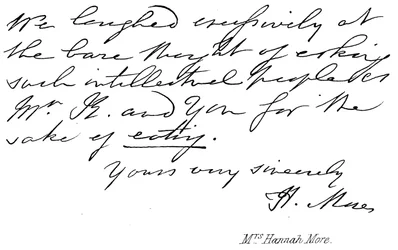 We laughed excessively at
the bare thought of asking
such intellectual People as
Mr. R. and You for the
sake of eating.
Yours very sincerely
H. More
Mrs Hannah More.